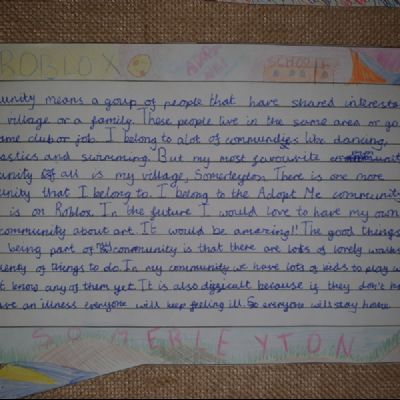 ROBLOX ADOPT ME! SCHOOL
unity means a goup of people that have shared interests
village or a family. These people live in the same area or go
ame club or job. I belong to alot of communities like dancing,
astics and swimming. But my most favourite
unity of all is my village, Somerleyton. There is one more
unity that I belong to. I belong to the Adopt Me community
is on Roblox. In the future I would love to have my own
community about art. It would be amazing!! The good things
being part of my community is that there are lots of lovely walks
lenty of things to do. In my community we have lots of kids to play w
t know any of them yet. It is also difficult because if they don't
ave an illness everyone will keep feeling ill. So everyone will stay home
SOMERLEYTON